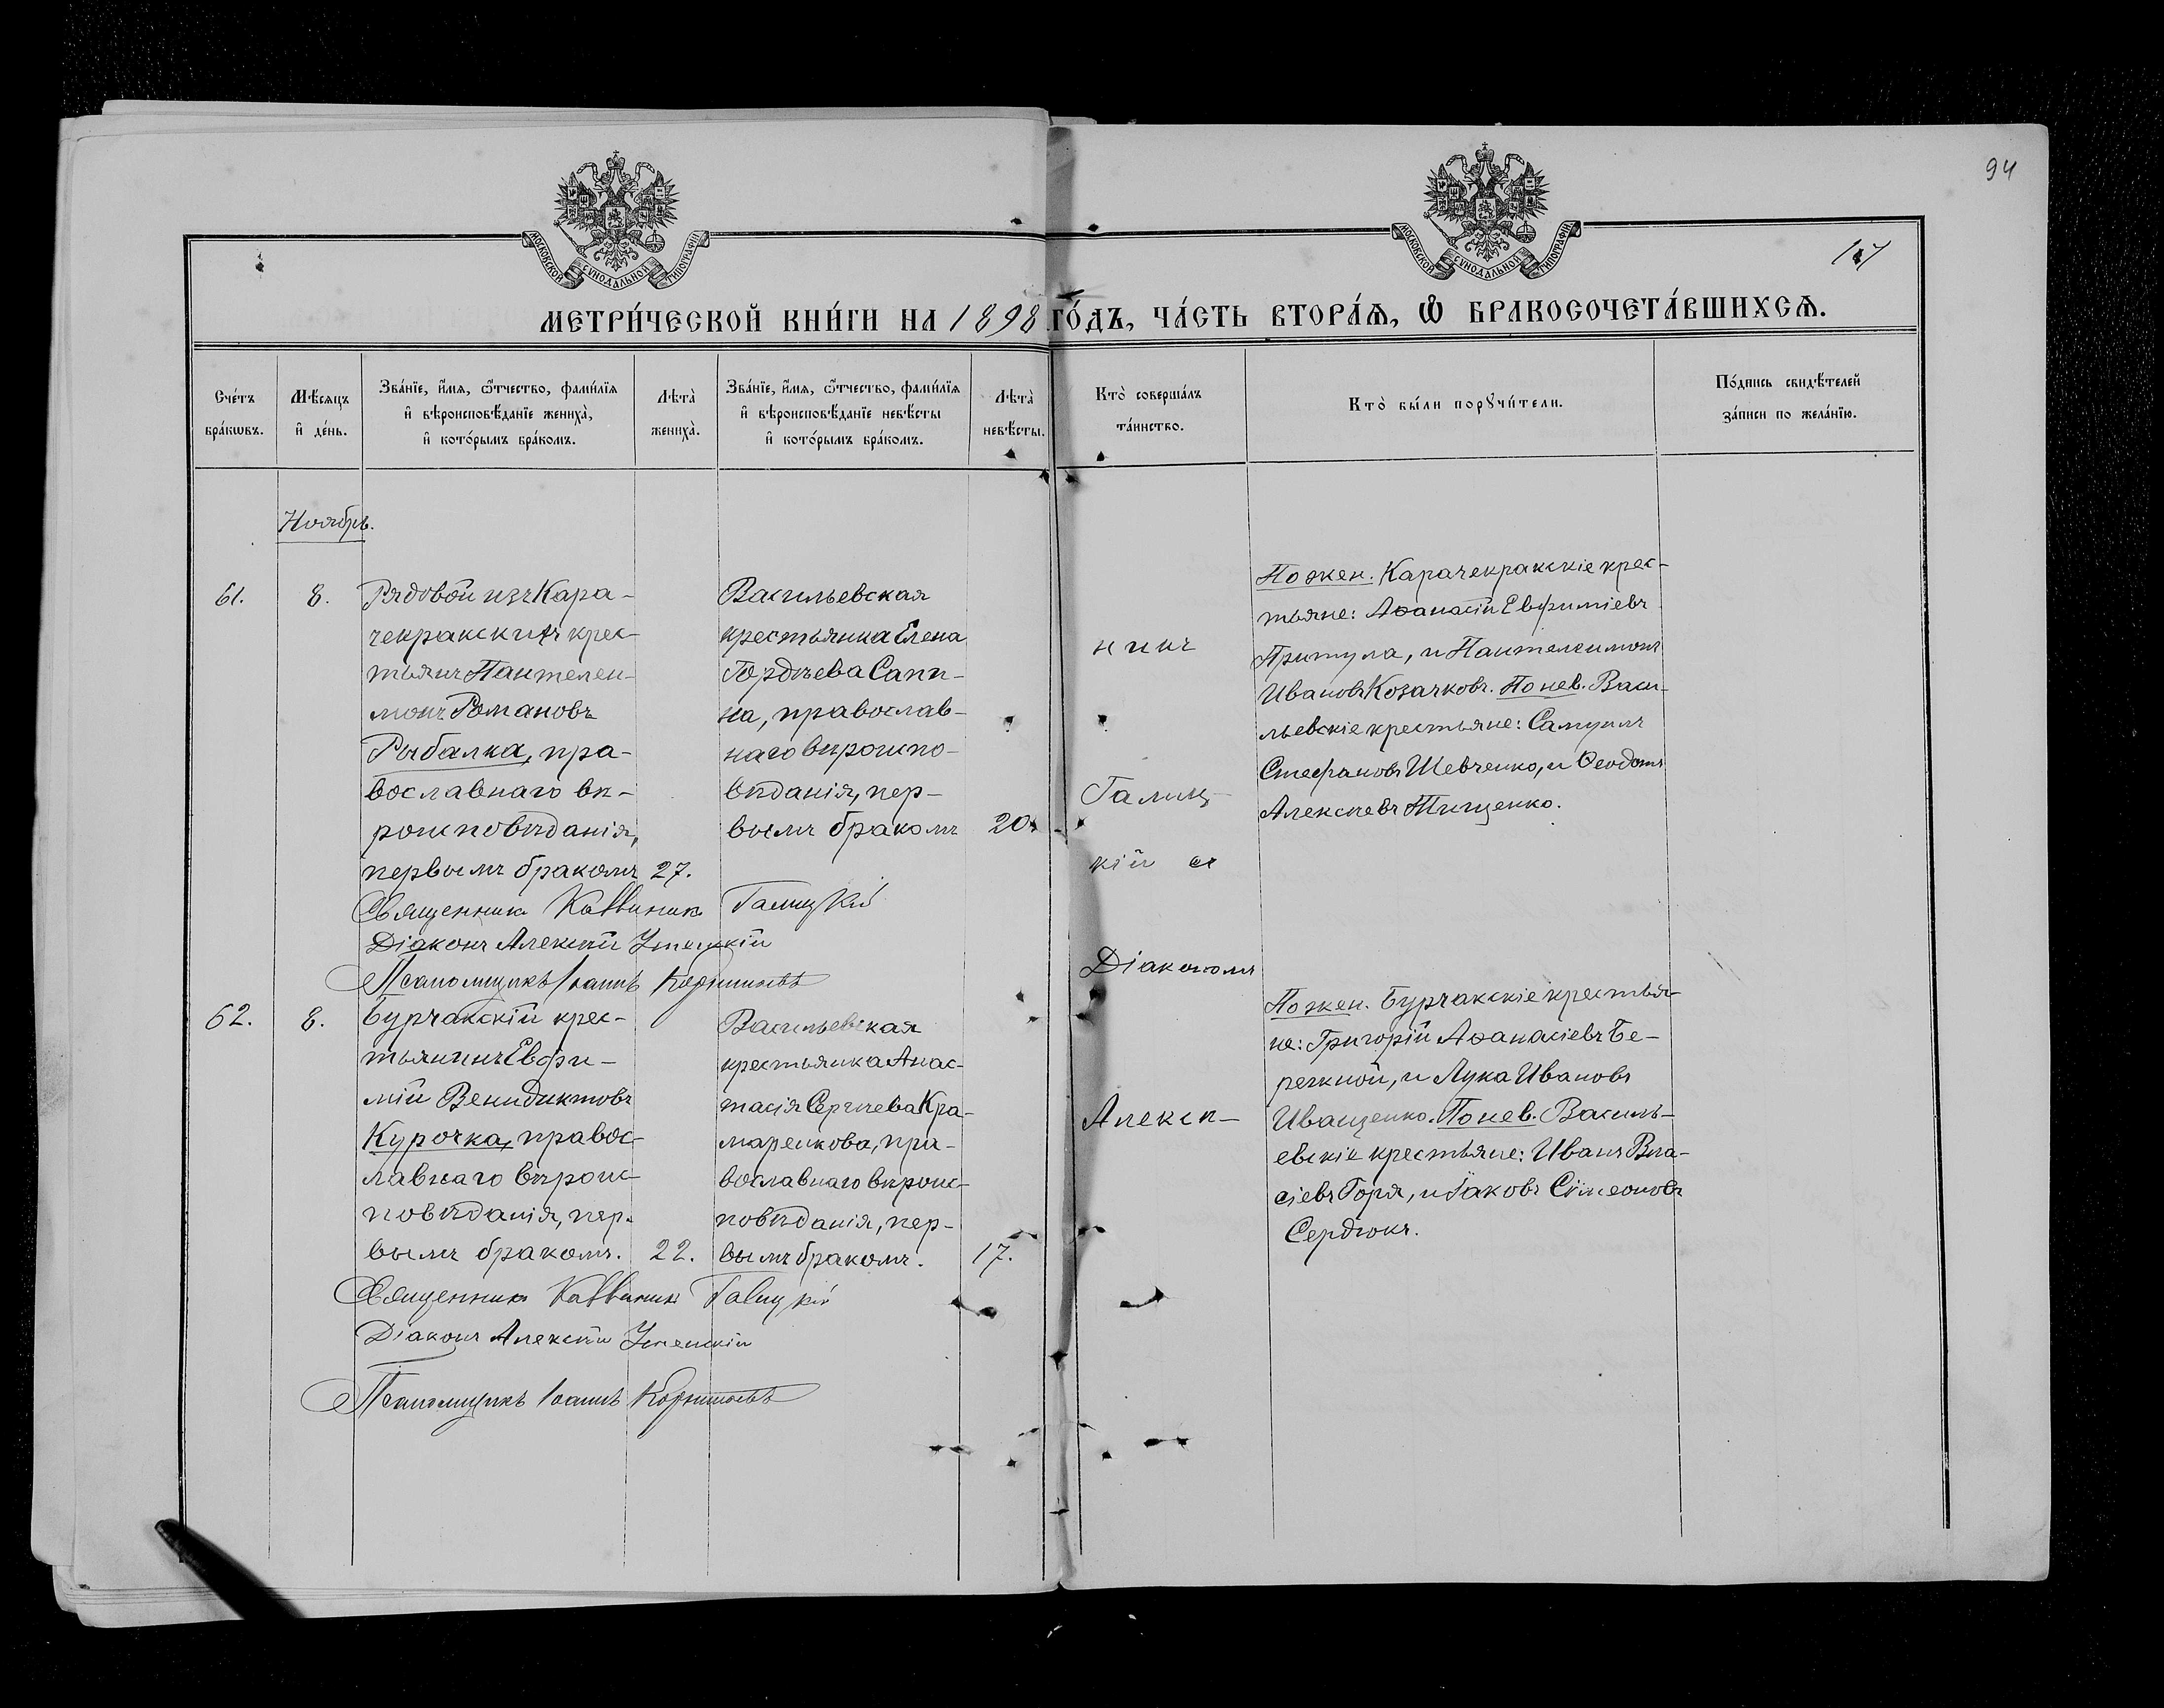 94
МОСКОВСКОЙ СѴНОДАЛЬНОЙ ТИПОГРАФІИ
МОСКОВСКОЙ СѴНОДАЛЬНОЙ ТИПОГРАФІИ
МЕТРИ́ЧЕСКОЙ КНИ́ГИ НА 1898 ГО́ДЪ, ЧА́СТЬ ВТОРА́Ѧ, Ѽ БРАКОСОЧЕТА́ВШИХСѦ.
Сче́тъ
бра́кѡвъ.
Мѣ́сяцъ
и҆ де́нь.
Зва́нїе, и҆́мя, ѻ҆́тчество, фами́лїя
и҆ вѣроисповѣ́данїе жениха̀,
и҆ кото́рымъ бра́комъ.
Лѣта̀
жениха̀.
Зва́нїе, и҆́мя, ѻ҆́тчество, фами́лїя
и҆ вѣроисповѣ́данїе невѣ́сты
и҆ кото́рымъ бра́комъ.
Лѣта̀
невѣ́сты.
Кто̀ соверша́лъ
та́инство.
Кто̀ бы́ли порꙋчи́тели.
По́дпись свидѣ́телей
за́писи по жела́нїю.
Ноябрь.
61.
8.
Рядовой изъ Кара-
чекракскихъ крес-
тьянъ Пантелеи-
монъ Романовъ
Рыбалка, пра-
вославнаго вѣ-
роисповѣданія,
первымъ бракомъ 27.
Васильевская
крестьянка Елена
Гордѣева Сапи-
на, православ-
наго вѣроиспо-
вѣданія, пер-
вымъ бракомъ 20.
никъ
Галиц-
кій съ
Діакономъ
Алексѣ-
По жен. Карачекракскіе крес-
тьяне: Аѳанасій Евфиміевъ
Притула, и Пантелеимонъ
Ивановъ Козачковъ. По нев. Васи-
льевскіе крестьяне: Самуилъ
Стефановъ Шевченко, и Ѳеодотъ
Алексѣевъ Тищенко.
Священникъ Каллиникъ Галицкій
Діаконъ Алексѣй Успенскій
Псаломщикъ Іоаннъ
62.
8.
Бурчакскій крес-
тьянинъ Евфи-
мій Венидиктовъ
Курочка, правос-
лавнаго вѣроис-
повѣданія, пер-
вымъ бракомъ. 22.
Васильевская
крестьянка Анас-
тасія Сергѣева Кра-
маренкова, пра-
вославнаго вѣроис-
повѣданія, пер-
вымъ бракомъ. 17.
По жен. Бурчакскіе крестья-
не: Григорій Аѳанасіевъ Бе-
режной, и Лука Ивановъ
Иващенко. По нев. Василь-
евскіе крестьяне: Иванъ Вла-
сіевъ Горя, и Іаковъ Сѵмеоновъ
Сердюкъ.
Священникъ Каллиникъ Галицкій
Діаконъ Алексѣй Успенскій
Псаломщикъ Іоаннъ